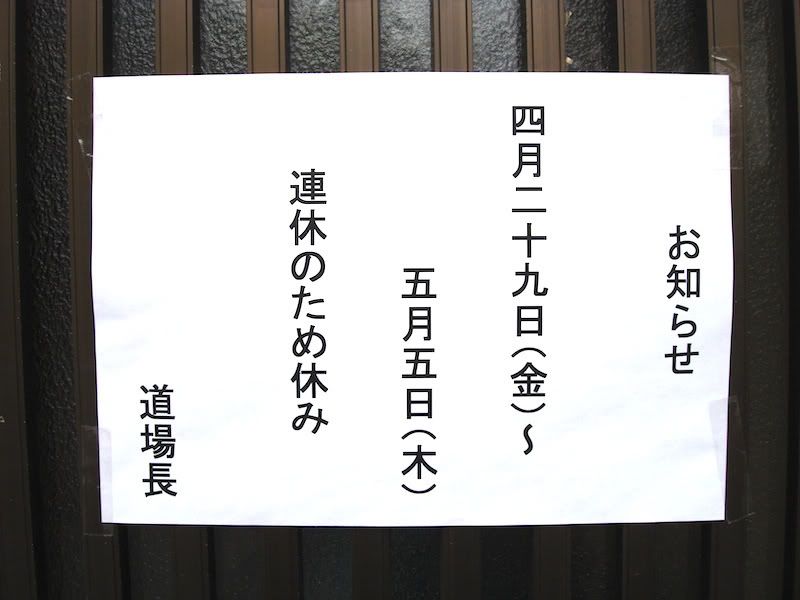 お知らせ
四月二十九日(金)~
五月五日(木)
連休のため休み
道場長